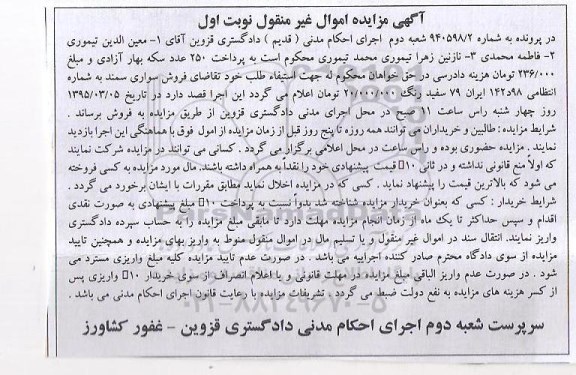 آگهی مزایده اموال غیر منقول نوبت اول
در پرونده به شماره ۹۴۰۵۹۸/۲ شعبه دوم اجرای احکام مدنی ( قدیم ) دادگستری قزوین آقای ۱- معین الدین تیموری
۲- فاطمه محمدی ۳- نازنین زهرا تیموری محمد تیموری محکوم است به پرداخت ۲۵۰ عدد سکه بهار آزادی و مبلغ
۲۳۶/۰۰۰ تومان هزینه دادرسی در حق خواهان محکوم له جهت استیفاء طلب خود تقاضای فروش سواری سمند به شماره
انتظامی ۹۸د۱۴۲ ایران ۷۹ سفید رنگ ۲۰/۰۰۰/۰۰۰ تومان اعلام می گردد این اجرا قصد دارد در تاریخ ۱۳۹۵/۰۳/۰۵
روز چهار شنبه راس ساعت ۱۱ صبح در محل اجرای مدنی دادگستری قزوین از طریق مزایده به فروش برساند .
شرایط مزایده : طالبین و خریداران می توانند همه روزه تا پنج روز قبل از زمان مزایده از امول فوق با هماهنگی این اجرا بازدید
نمایند . مزایده حضوری بوده و راس ساعت در محل اعلامی برگزار می گردد . کسانی می توانند در مزایده شرکت نمایند
که اولاً منع قانونی نداشته و در ثانی ۱۰٪ قیمت پیشنهادی خود را نقداً به همراه داشته باشند. مال مورد مزایده به کسی فروخته
می شود که بالاترین قیمت را پیشنهاد نماید . کسی که در مزایده اخلال نماید مطابق مقررات با ایشان برخورد می گردد .
شرایط خریدار : کسی که بعنوان خریدار مزایده شناخته شد بدواً نسبت به پرداخت ۱۰٪ مبلغ پیشنهادی به صورت نقدی
اقدام و سپس حداکثر تا یک ماه از زمان انجام مزایده مهلت دارد تا مابقی مبلغ مزایده را به حساب سپرده دادگستری
واریز نمایند. انتقال سند در اموال غیر منقول و یا تسلیم مال در اموال منقول منوط به واریز بهای مزایده و همچنین تایید
مزایده از سوی دادگاه محترم صادر کننده اجراییه می باشد . در صورت عدم تایید مزایده کلیه مبلغ واریزی مسترد می
شود . در صورت عدم واریز الباقی مبلغ مزایده در مهلت قانونی و یا اعلام انصراف از سوی خریدار ۱۰٪ واریزی پس
از کسر هزینه های مزایده به نفع دولت ضبط می گردد . تشریفات مزایده با رعایت قانون اجرای احکام مدنی می باشد .
سرپرست شعبه دوم اجرای احکام مدنی دادگستری قزوین - غفور کشاورز
۰۲۱-۸۸۳۴۹۶۷۰-۵